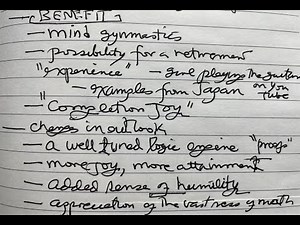 — [BENEFIT]
— mind gymnastics
— possibility for a retirement
"experience" — playing the guitar
— examples from Japan on You Tube
"Completion Joy"
— change in outlook
— a well tuned logic engine "proofs"
— more joy, more attainment
— added sense of humility
— appreciation of the vastness of math